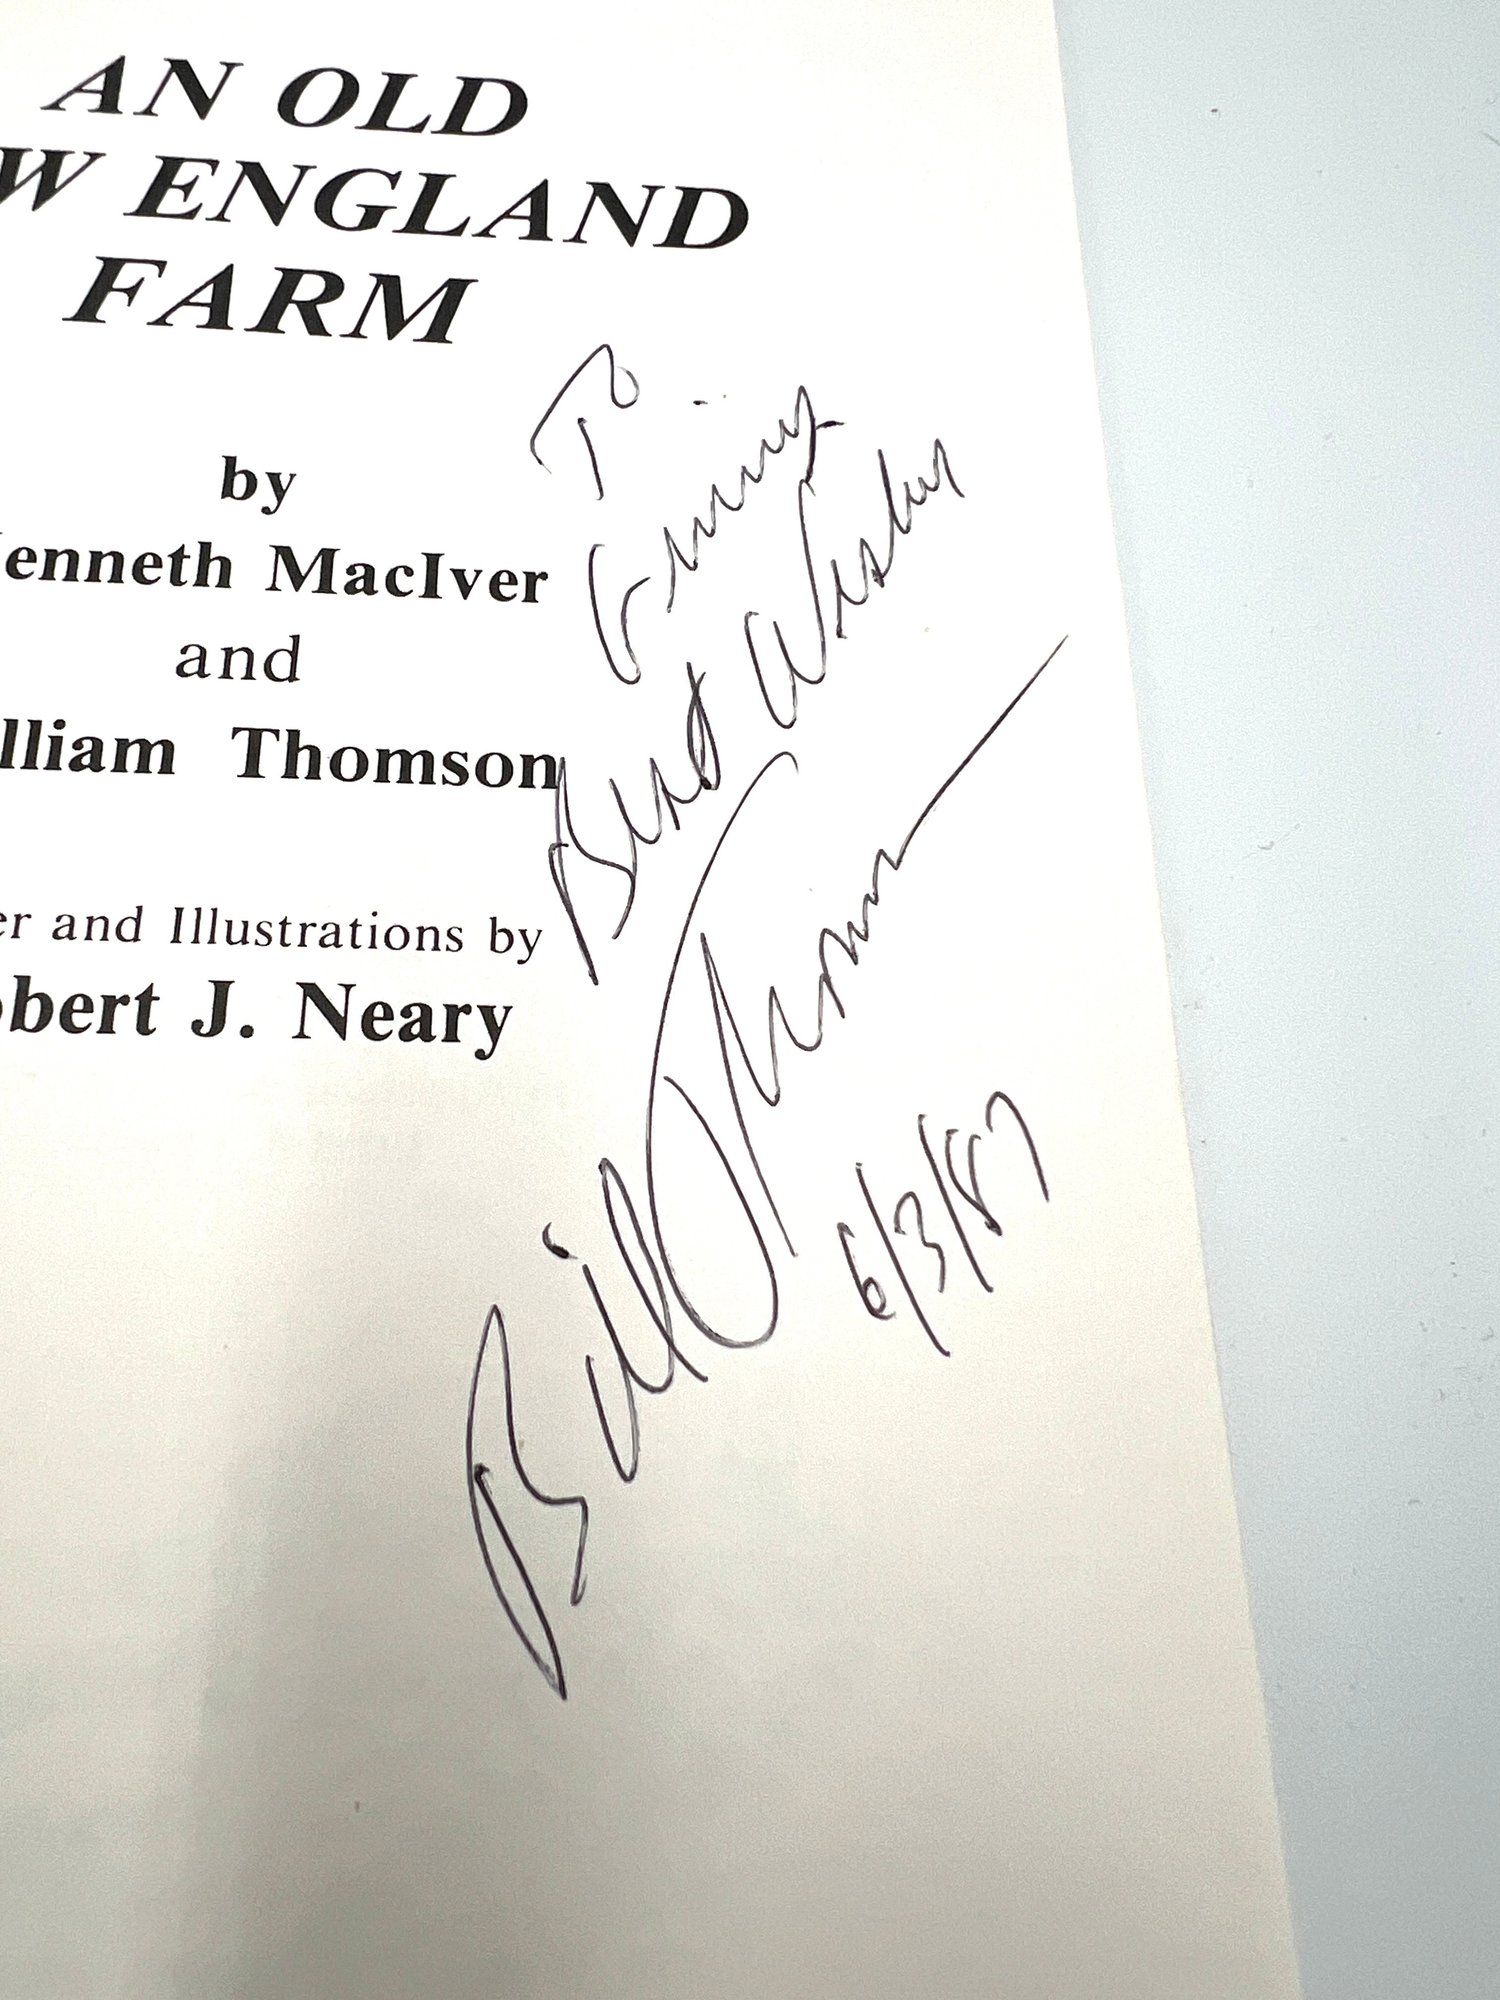 AN OLD
W ENGLAND
FARM
by
enneth MacIver
and
lliam Thomson
er and Illustrations by
bert J. Neary
To
Ginny
Best Wishes
Bill Thomson
6/3/87